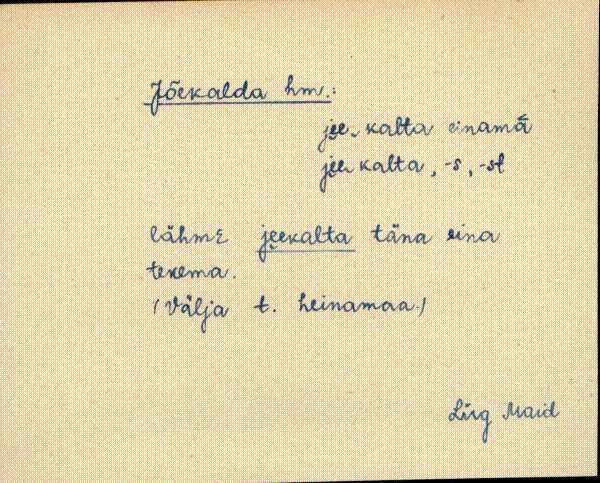 Jõekalda hm.:
jee-kalta einamā
jee kalta, -s, -st
lähme jeekalta täna eina
tekema.
(Välja t. heinamaa.)
Maid